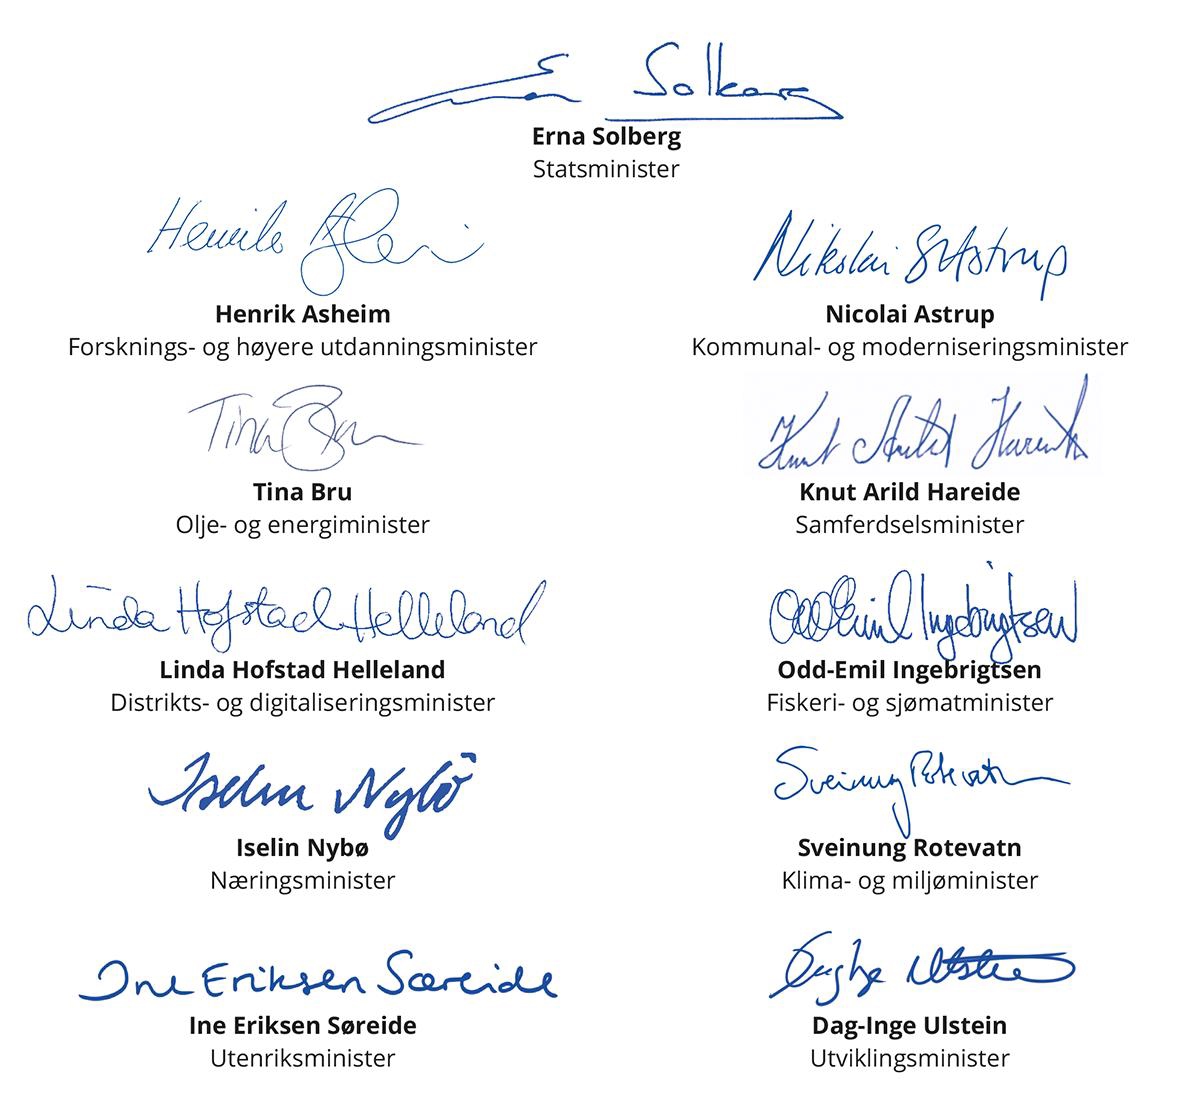 Erna Solberg
Erna Solberg
Statsminister
Henrik Asheim
Henrik Asheim
Forsknings- og høyere utdanningsminister
Nikolai Astrup
Nicolai Astrup
Kommunal- og moderniseringsminister
Tina Bru
Tina Bru
Olje- og energiminister
Knut Arild Hareide
Knut Arild Hareide
Samferdselsminister
Linda Hofstad Helleland
Linda Hofstad Helleland
Distrikts- og digitaliseringsminister
Odd Emil Ingebrigtsen
Odd-Emil Ingebrigtsen
Fiskeri- og sjømatminister
Iselin Nybø
Iselin Nybø
Næringsminister
Sveinung Rotevatn
Sveinung Rotevatn
Klima- og miljøminister
Ine Eriksen Søreide
Ine Eriksen Søreide
Utenriksminister
Ulstein
Dag-Inge Ulstein
Utviklingsminister